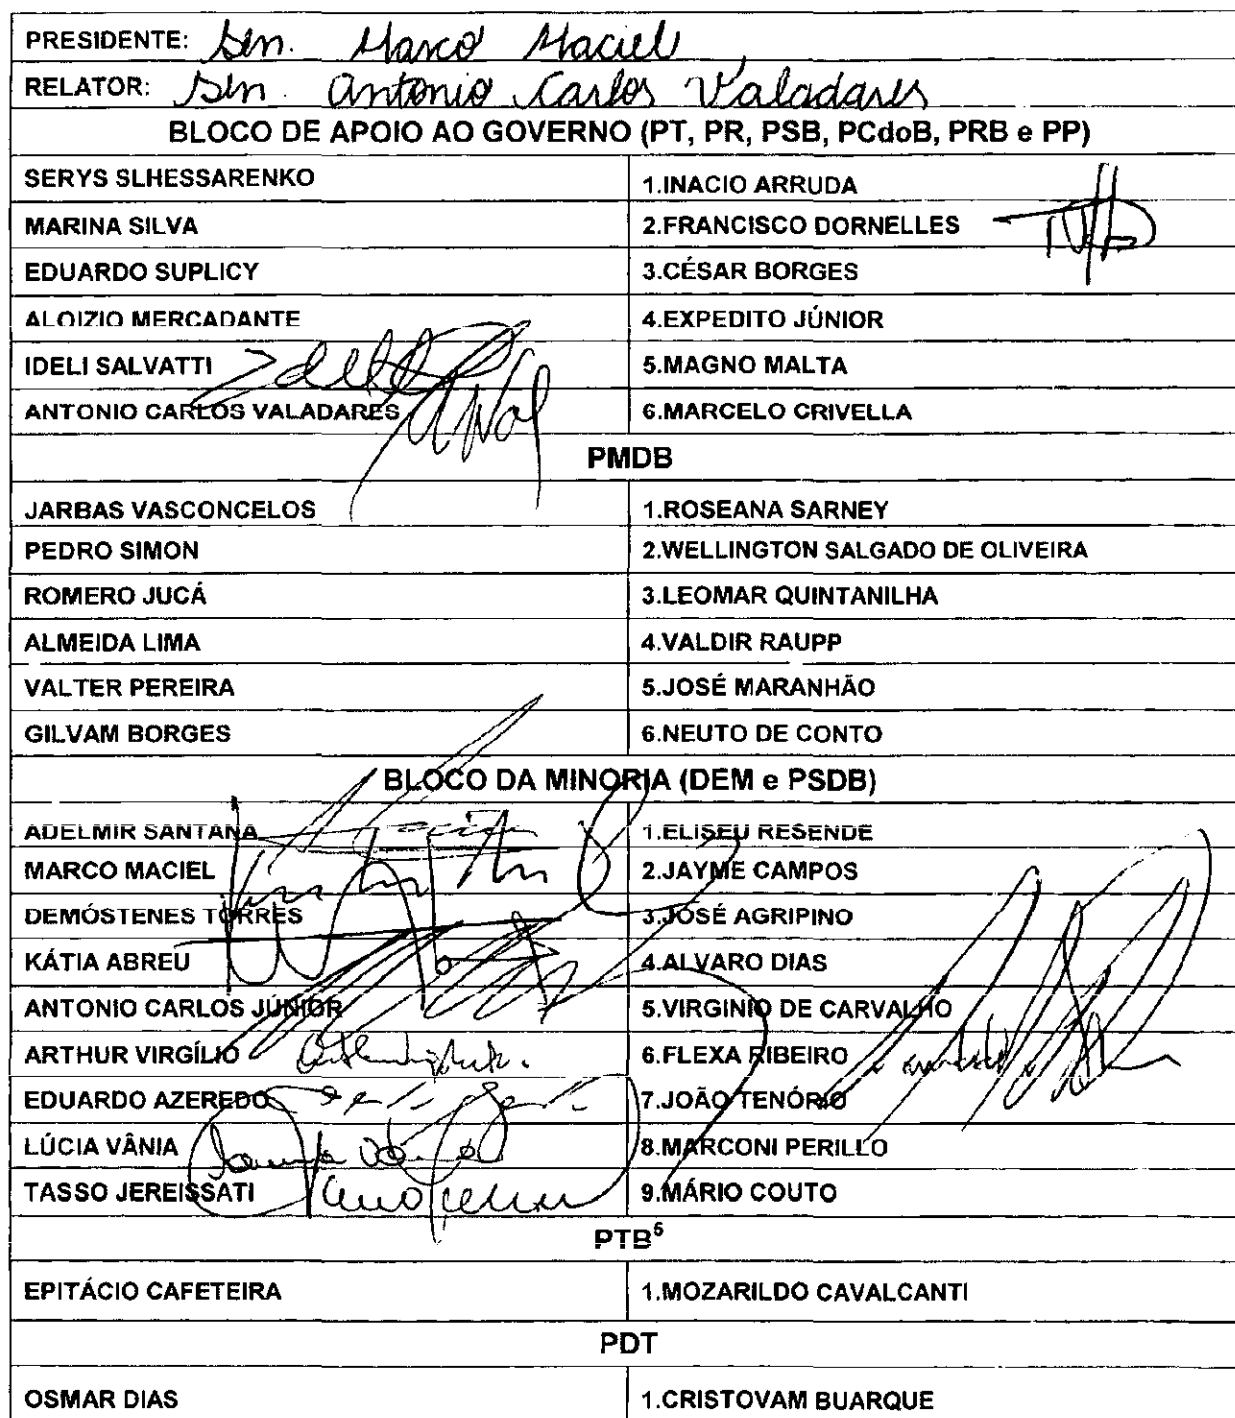 PRESIDENTE: Sen. Marco Maciel
RELATOR: Sen. Antonio Carlos Valadares
BLOCO DE APOIO AO GOVERNO (PT, PR, PSB, PCdoB, PRB e PP)
SERYS SLHESSARENKO 1.INACIO ARRUDA
MARINA SILVA 2.FRANCISCO DORNELLES
EDUARDO SUPLICY 3.CÉSAR BORGES
ALOIZIO MERCADANTE 4.EXPEDITO JÚNIOR
IDELI SALVATTI 5.MAGNO MALTA
ANTONIO CARLOS VALADARES 6.MARCELO CRIVELLA
PMDB
JARBAS VASCONCELOS 1.ROSEANA SARNEY
PEDRO SIMON 2.WELLINGTON SALGADO DE OLIVEIRA
ROMERO JUCÁ 3.LEOMAR QUINTANILHA
ALMEIDA LIMA 4.VALDIR RAUPP
VALTER PEREIRA 5.JOSÉ MARANHÃO
GILVAM BORGES 6.NEUTO DE CONTO
BLOCO DA MINORIA (DEM e PSDB)
ADELMIR SANTANA 1.ELISEU RESENDE
MARCO MACIEL 2.JAYME CAMPOS
DEMÓSTENES TORRES 3.JOSÉ AGRIPINO
KÁTIA ABREU 4.ALVARO DIAS
ANTONIO CARLOS JÚNIOR 5.VIRGINIO DE CARVALHO
ARTHUR VIRGÍLIO 6.FLEXA RIBEIRO
EDUARDO AZEREDO 7.JOÃO TENÓRIO
LÚCIA VÂNIA 8.MARCONI PERILLO
TASSO JEREISSATI 9.MÁRIO COUTO
PTB⁵
EPITÁCIO CAFETEIRA 1.MOZARILDO CAVALCANTI
PDT
OSMAR DIAS 1.CRISTOVAM BUARQUE